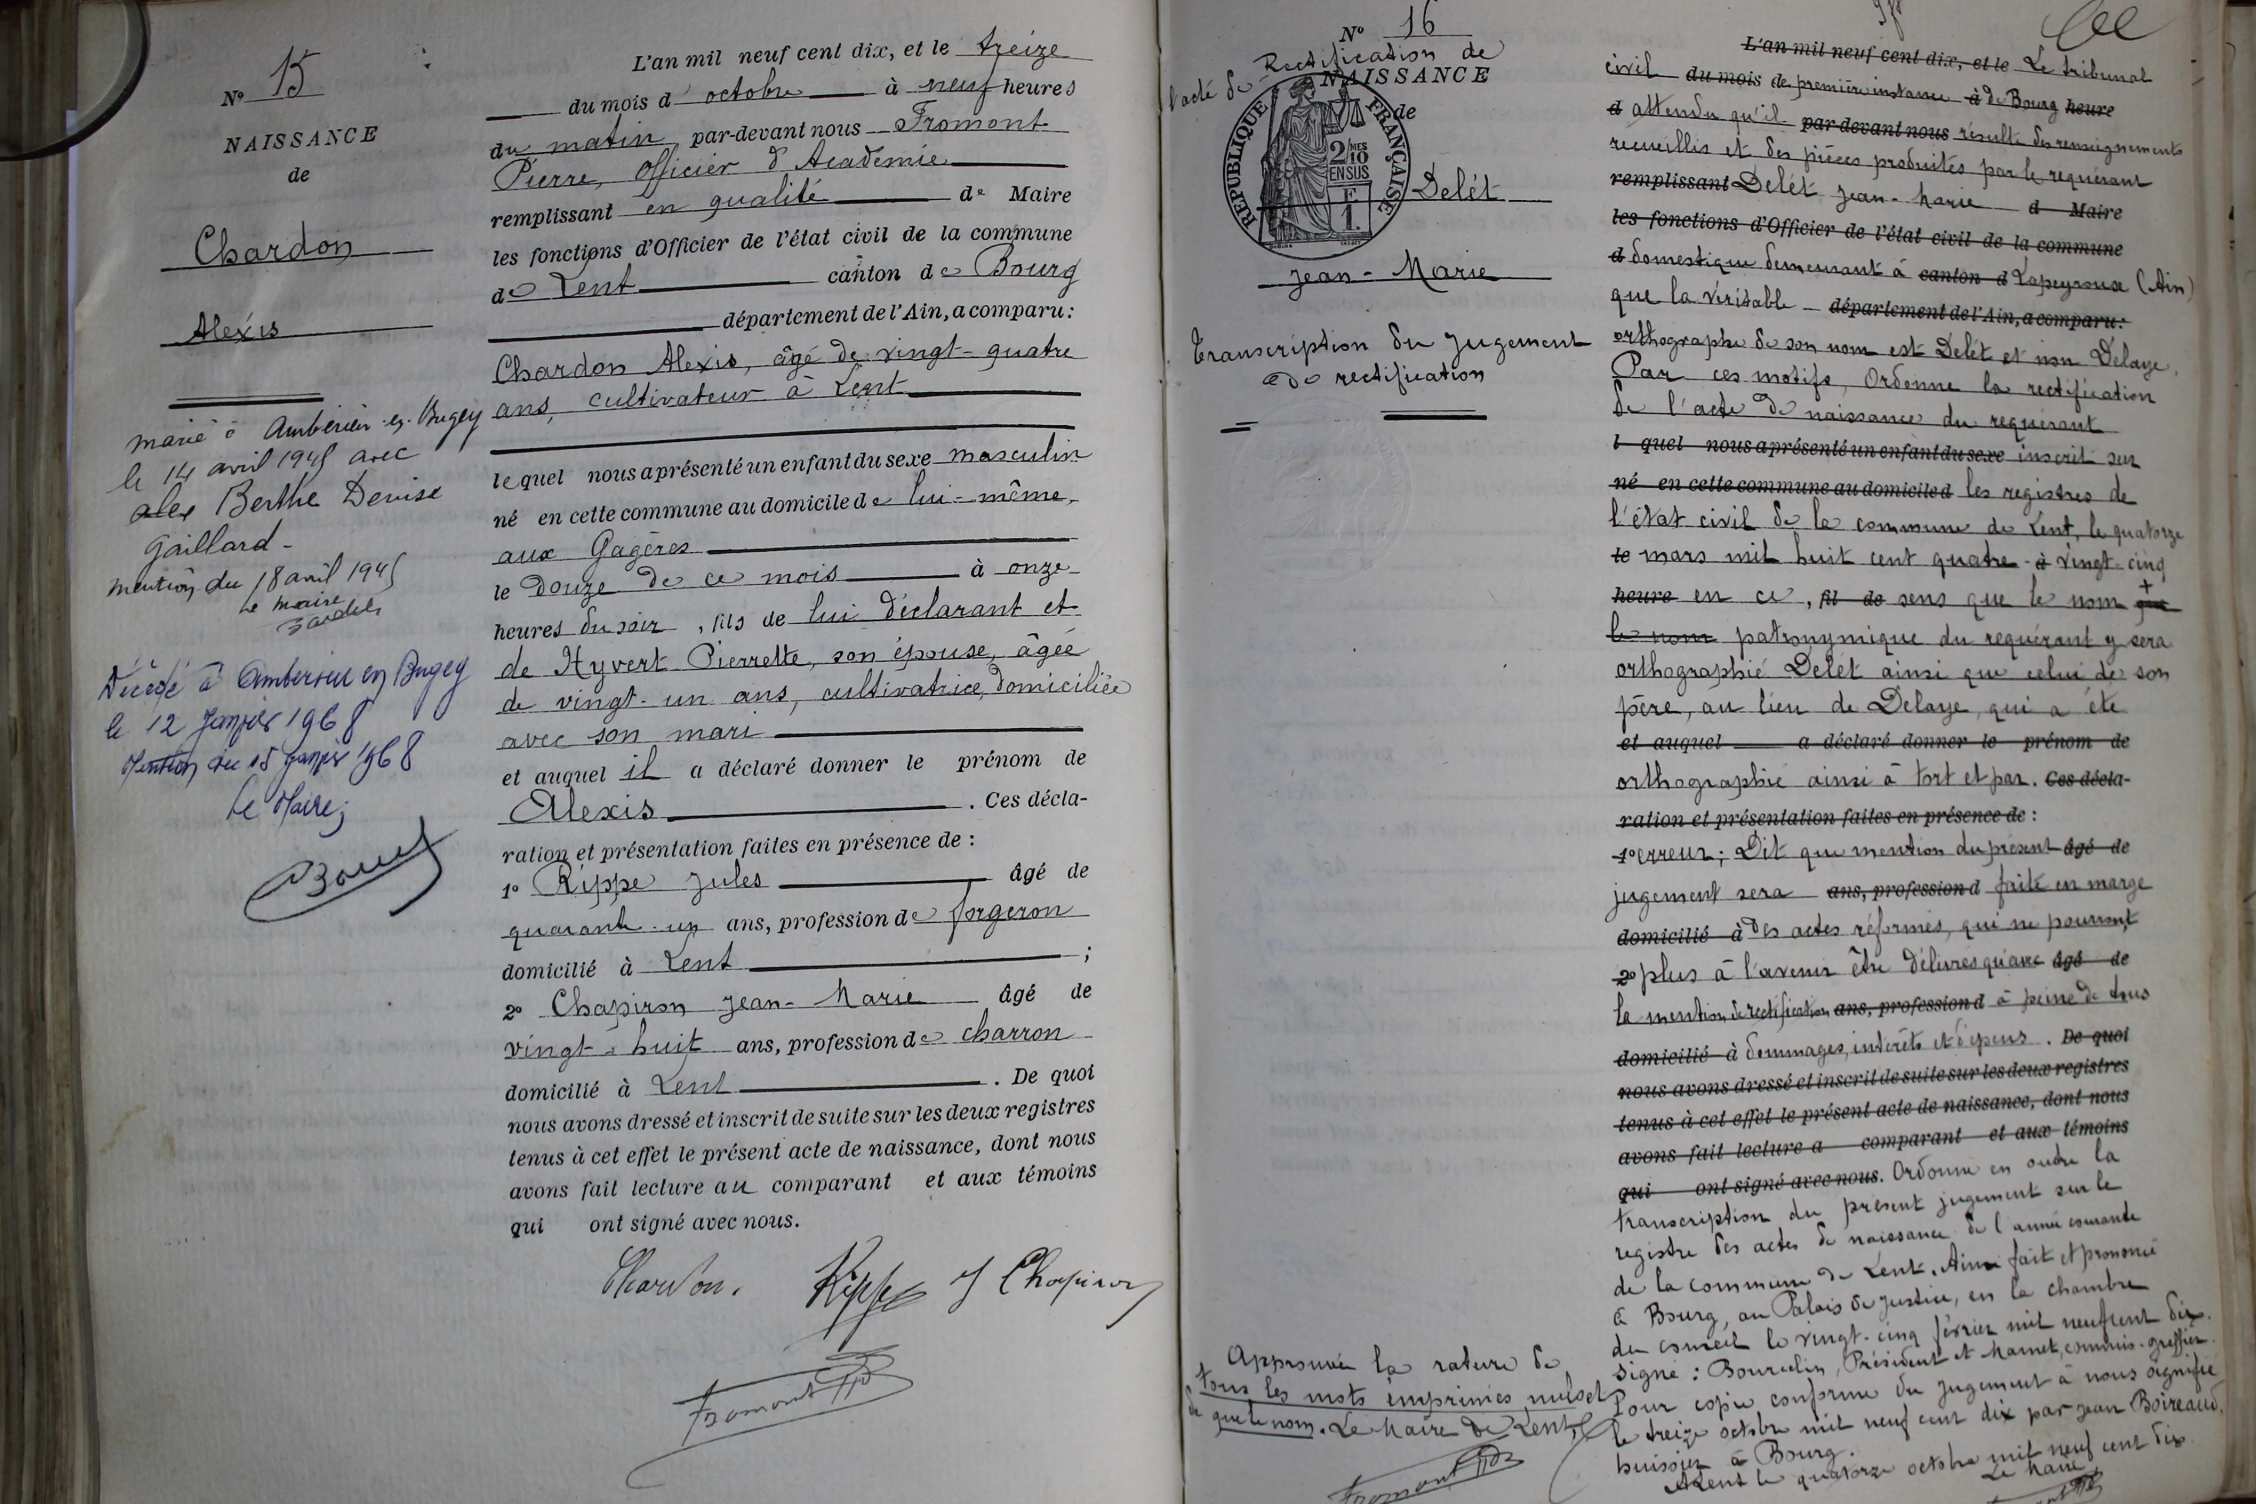 N° 15
NAISSANCE
de
Chardon
Alexis
marié à Ambérieu-en-Bugey
le 14 avril 1945 avec
Berthe Denise
Gaillard -
mention du 18 avril 1945
Le maire
Décédé à Ambérieu en Bugey
le 12 Janvier 1968
Mention du 15 Janvier 1968
Le Maire;
L'an mil neuf cent dix, et le treize
du mois d' octobre à neuf heures
du matin par-devant nous Fromont
Pierre, Officier d'Académie
remplissant en qualité de Maire
les fonctions d'Officier de l'état civil de la commune
de Lent canton de Bourg
département de l'Ain, a comparu :
Chardon Alexis, âgé de vingt-quatre
ans, cultivateur à Lent
lequel nous a présenté un enfant du sexe masculin
né en cette commune au domicile de lui-même,
aux Gagères
le douze de ce mois à onze
heures du soir, fils de lui déclarant et
de Hyvert Pierrette, son épouse, âgée
de vingt-un ans, cultivatrice, domiciliée
avec son mari
et auquel il a déclaré donner le prénom de
Alexis. Ces décla-
ration et présentation faites en présence de :
1° Rippe Jules âgé de
quarante-un ans, profession de forgeron
domicilié à Lent ;
2° Chapiron Jean-Marie âgé de
vingt-huit ans, profession de charron
domicilié à Lent. De quoi
nous avons dressé et inscrit de suite sur les deux registres
tenus à cet effet le présent acte de naissance, dont nous
avons fait lecture au comparant et aux témoins
qui ont signé avec nous.
Chardon. Rippe J Chapiron
Fromont
N° 16
Rectification de
l'acte de NAISSANCE
de
RÉPUBLIQUE FRANÇAISE
2/10 MES
EN SUS
F
1.
Delét
Jean-Marie
Transcription du jugement
de rectification
Approuvé la rature de
tous les mots imprimés nuls et
de que le nom. Le Maire de Lent,
Fromont
L'an mil neuf cent dix, et le Le tribunal
civil du mois de première instance à de Bourg heure
d attendu qu'il par-devant nous résulte des renseignements
recueillis et des pièces produites par le requérant
remplissant Delét Jean-Marie d Maire
les fonctions d'Officier de l'état civil de la commune
d domestique demeurant à canton d Lapeyrouse (Ain)
que la véritable département de l'Ain, a comparu :
orthographe de son nom est Delét et non Delaye,
Par ces motifs, Ordonne la rectification
de l'acte de naissance du requérant
l quel nous a présenté un enfant du sexe inscrit sur
né en cette commune au domicile d les registres de
l'état civil de la commune de Lent, le quatorze
le mars mil huit cent quatre-à vingt-cinq
heure en ce, fil de sens que le nom que
le nom patronymique du requérant y sera
orthographié Delét ainsi que celui de son
père, au lieu de Delaye, qui a été
et auquel a déclaré donner le prénom de
orthographié ainsi à tort et par. Ces décla-
ration et présentation faites en présence de :
1° erreur; Dit que mention du présent âgé de
jugement sera ans, profession d faite en marge
domicilié à des actes réformés, qui ne pourront
2° plus à l'avenir être délivrés qu'avec âgé de
la mention de rectification ans, profession d à peine de tous
domicilié à dommages, intérêts et dépens. De quoi
nous avons dressé et inscrit de suite sur les deux registres
tenus à cet effet le présent acte de naissance, dont nous
avons fait lecture a comparant et aux témoins
qui ont signé avec nous. Ordonne en outre la
transcription du présent jugement sur le
registre des actes de naissance de l'année courante
de la commune de Lent. Ainsi fait et prononcé
à Bourg, au Palais de justice, en la chambre
du conseil le vingt-cinq février mil neuf cent dix.
Signé : Bourcelin, Président et Mamet, commis-greffier.
Pour copie conforme du jugement à nous signifié
le treize octobre mil neuf cent dix par Jean Boireaud,
huissier à Bourg.
A Lent le quatorze octobre mil neuf cent dix
Le Maire